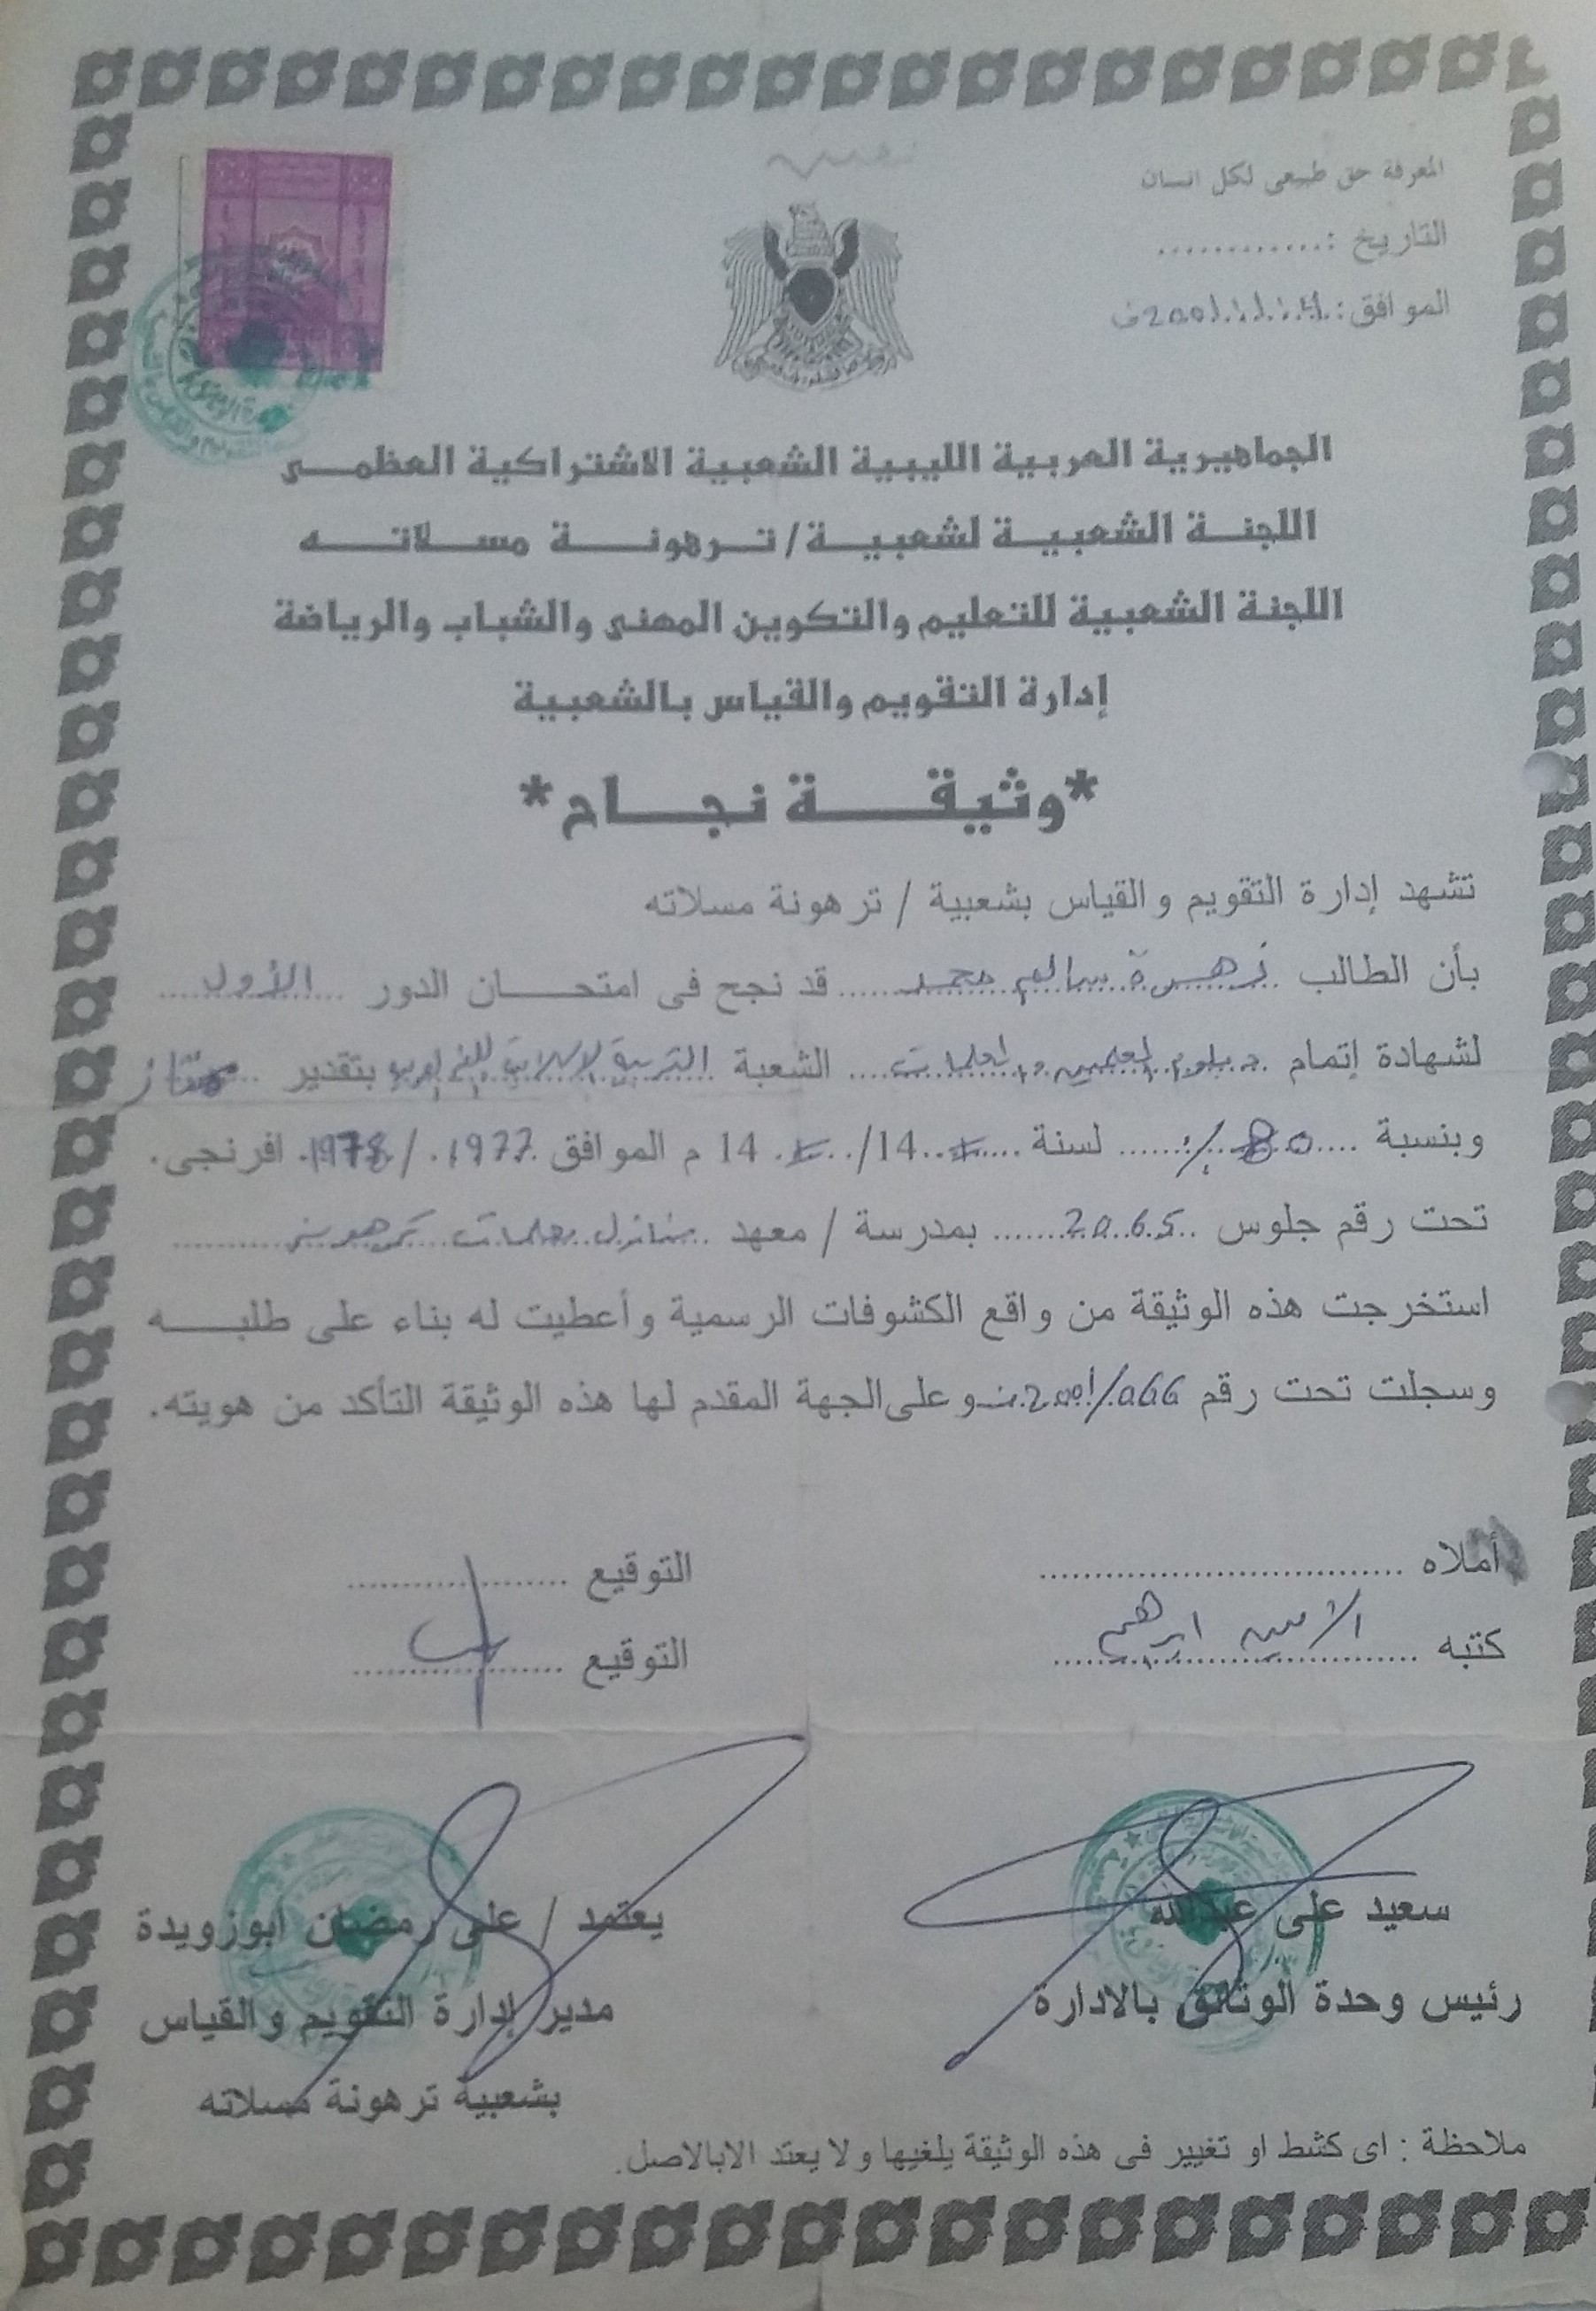 المعرفة حق طبيعى لكل انسان
التاريخ :.............
الموافق: 2001 ف
الجماهيرية العربية الليبية الشعبية الاشتراكية العظمى
اللجنة الشعبية لشعبية / ترهونة مسلاته
اللجنة الشعبية للتعليم والتكوين المهنى والشباب والرياضة
إدارة التقويم والقياس بالشعبية
*وثيقة نجاح*
تشهد إدارة التقويم والقياس بشعبية / ترهونة مسلاته
بأن الطالب زهرة سالم محمد قد نجح فى امتحان الدور الأول
لشهادة إتمام دبلوم المعلمين والمعلمات الشعبة التربية الاسلامية اللغة العربية بتقدير ممتاز
وبنسبة 80 % لسنة 14 / 14 م الموافق 1977 / 1978 افرنجى.
تحت رقم جلوس 2065 بمدرسة / معهد منازل معلمات ترهونة
استخرجت هذه الوثيقة من واقع الكشوفات الرسمية وأعطيت له بناء على طلبه
وسجلت تحت رقم 066/2001ف وعلى الجهة المقدم لها هذه الوثيقة التأكد من هويته.
أملاه ........ التوقيع ........
كتبه الامين ابراهيم التوقيع
سعيد على عبدالله
رئيس وحدة الوثائق بالادارة
يعتمد / على رمضان ابوزويدة
مدير إدارة التقويم والقياس
بشعبية ترهونة مسلاته
ملاحظة : اى كشط او تغيير فى هذه الوثيقة يلغيها ولا يعتد الابالاصل.